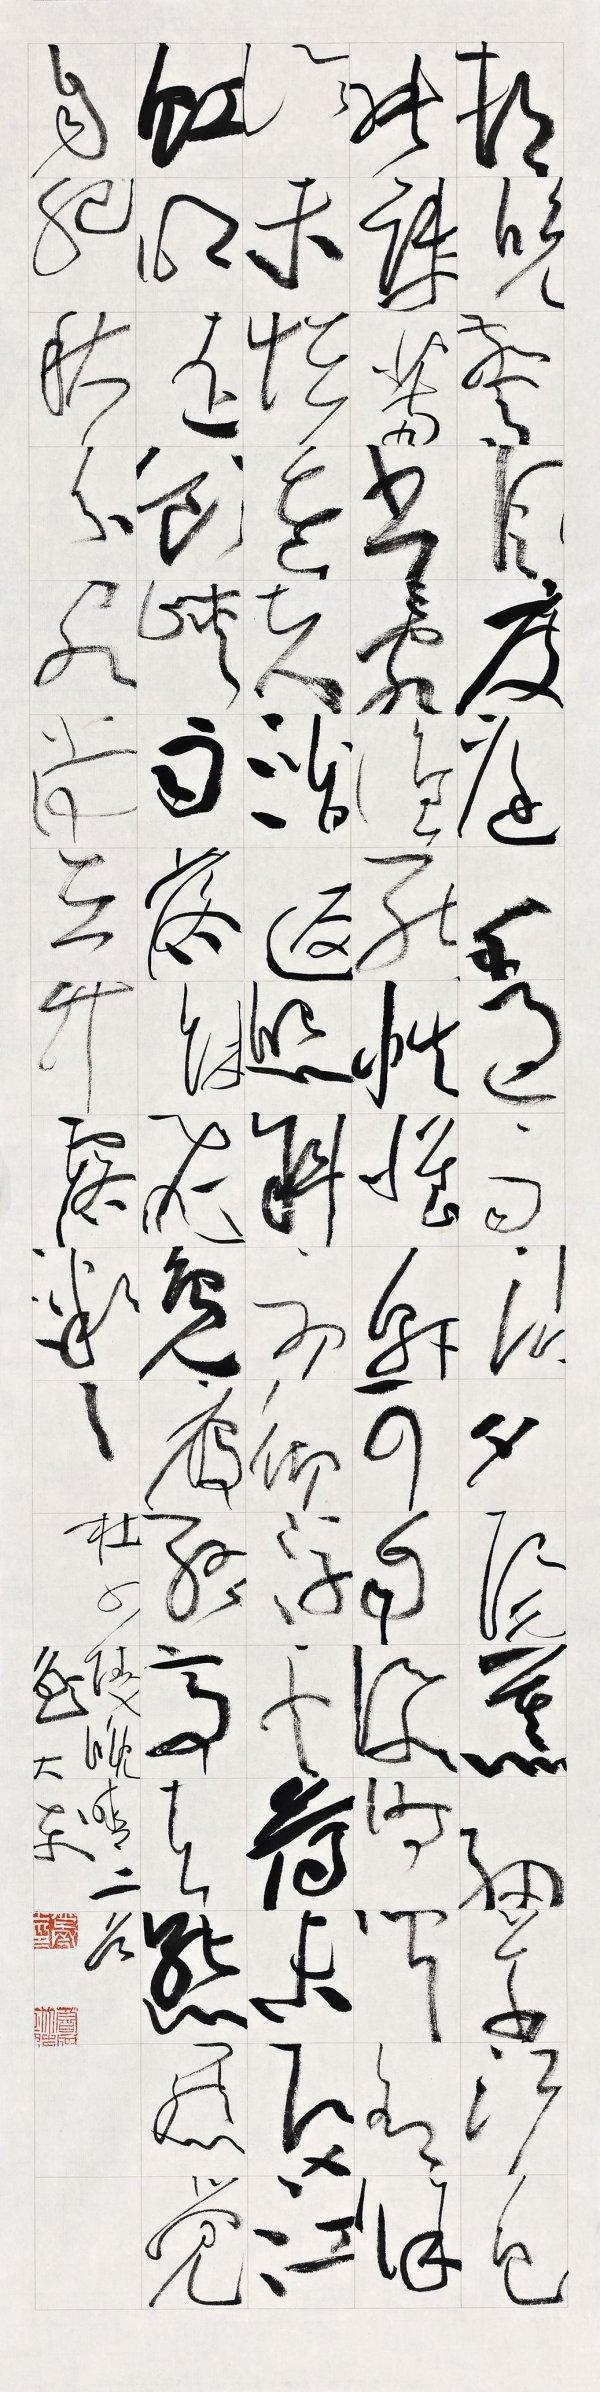 村晚驚風度庭幽過雨沾夕陽薰細草江色
映疎簾書亂誰能帙杯乾可自添時聞有餘
論未怪老夫潛返照斜初徹浮雲薄未歸江
虹明遠飲峽雨落餘飛鳧雁終高去熊羆覺
自肥秋分客尚在竹露夕微〻
杜少陵晚晴二首